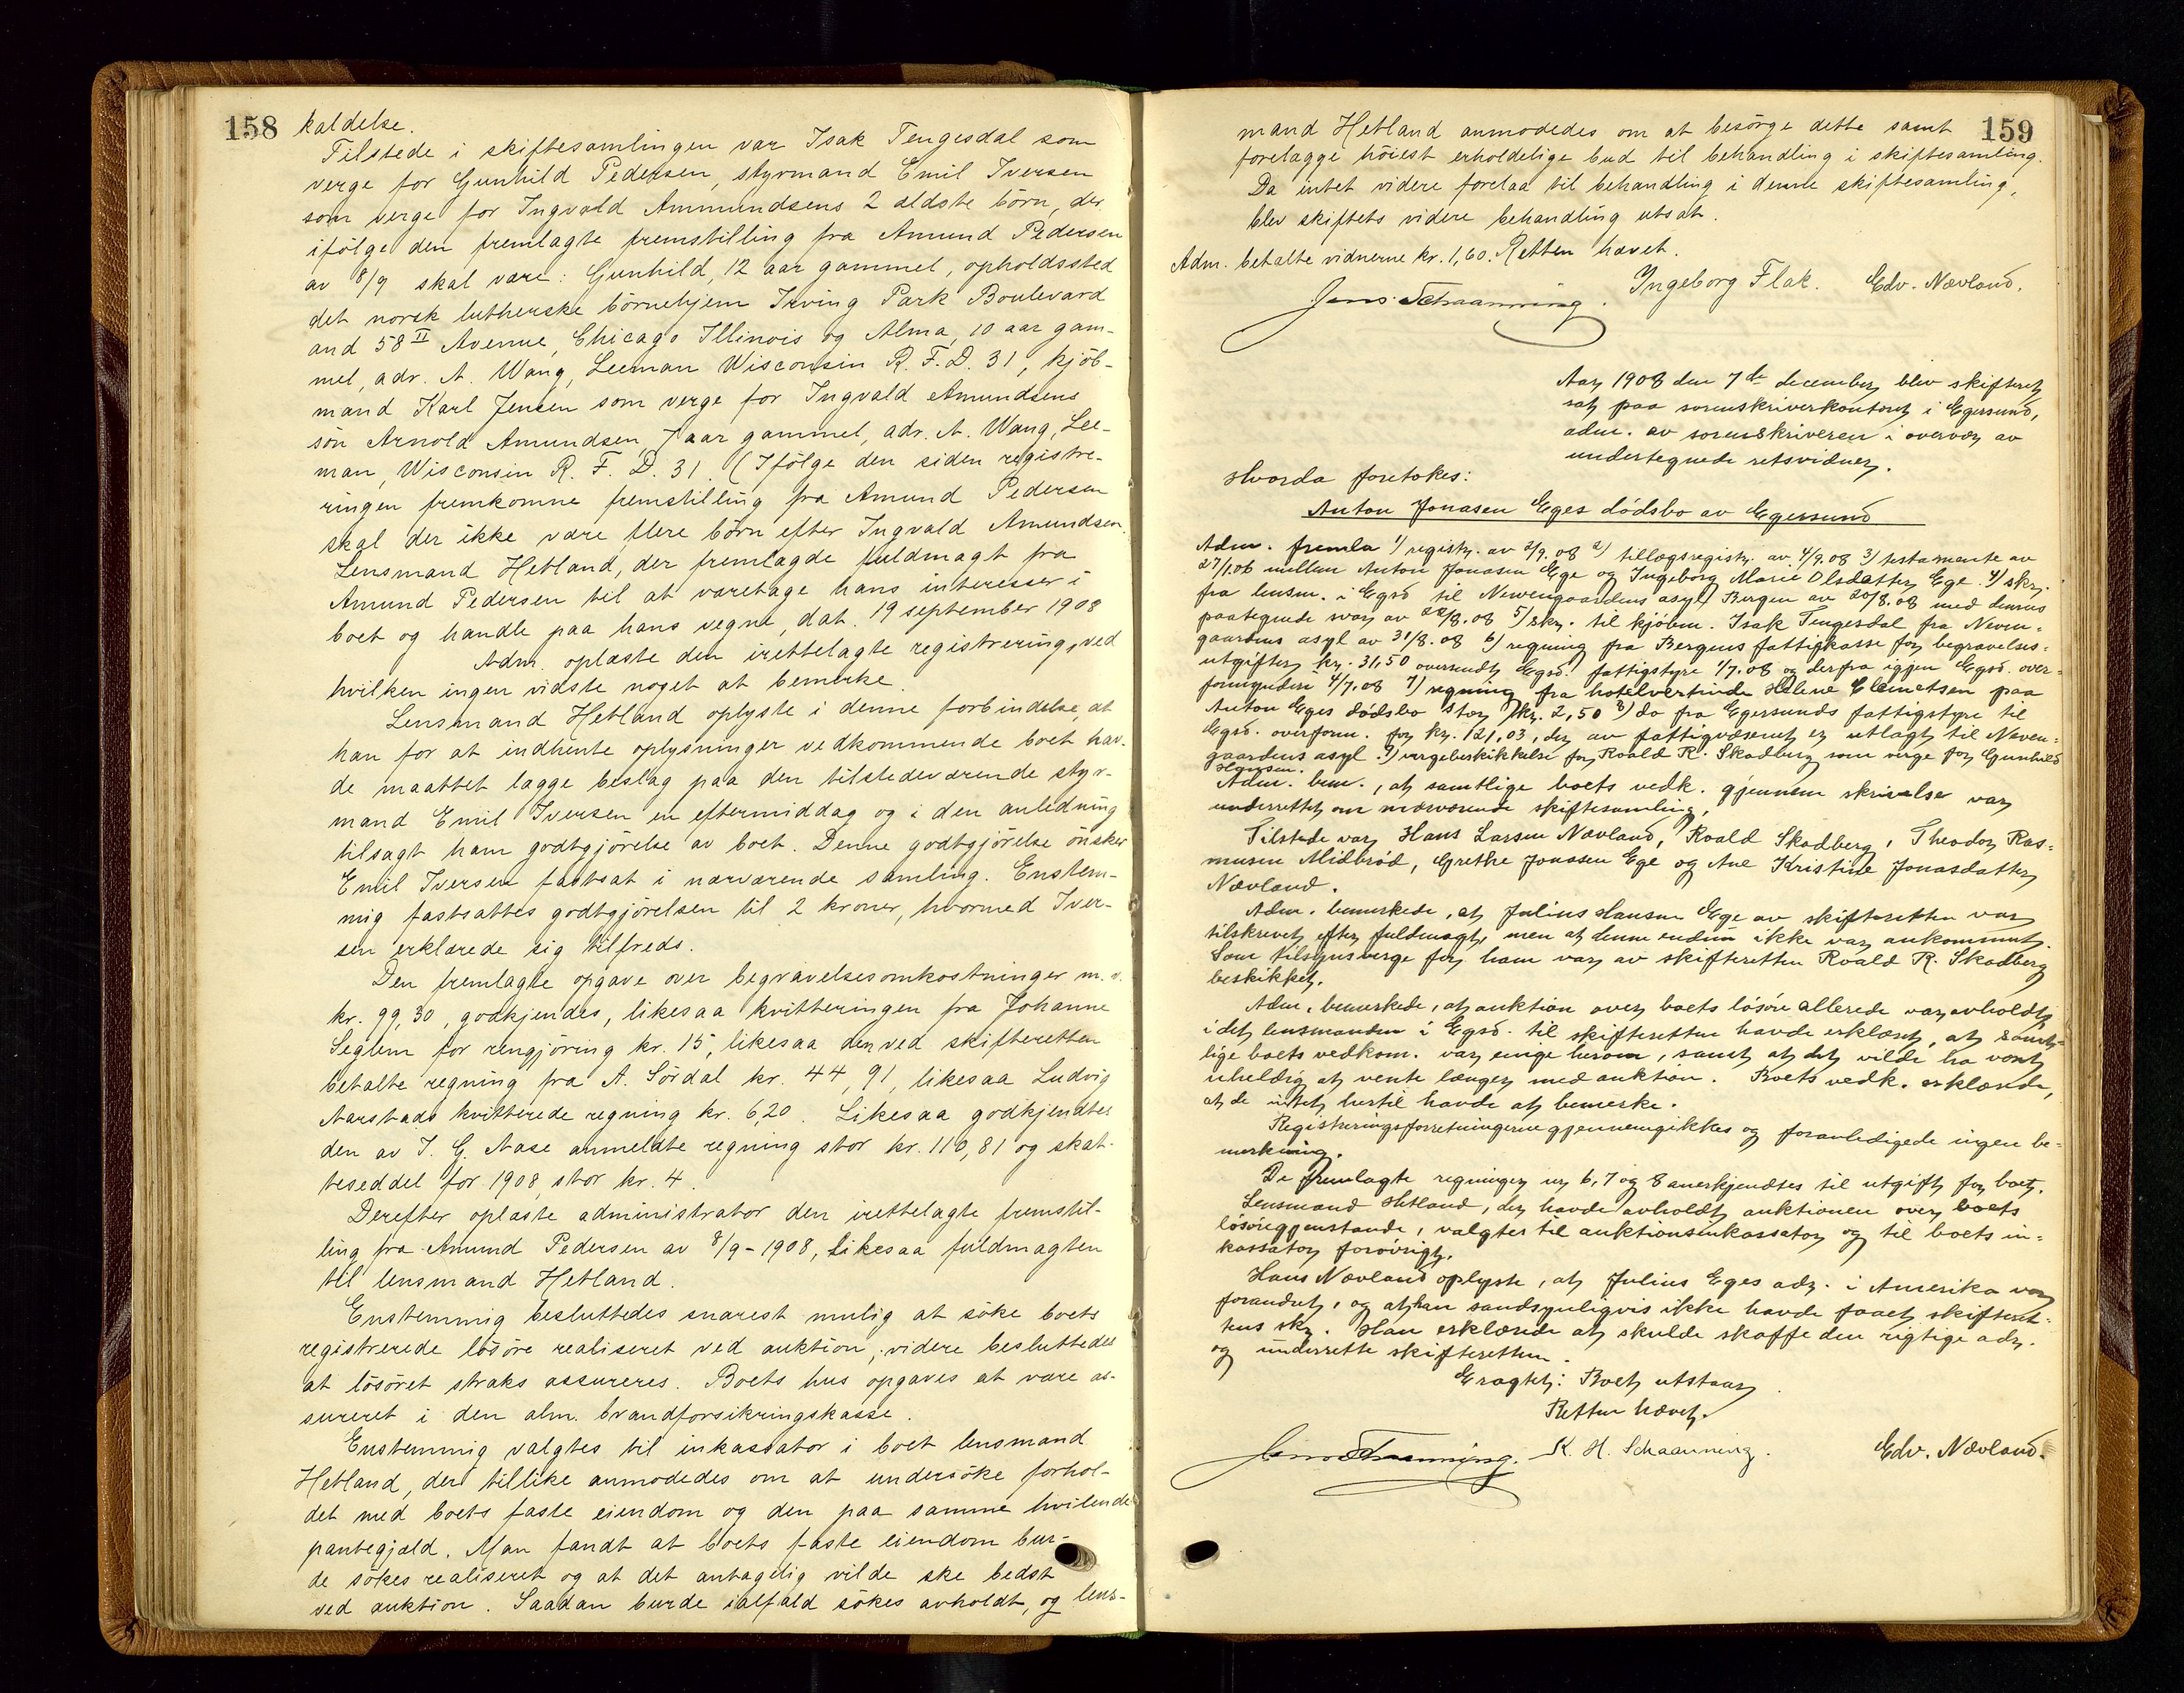 158
kaldelse.
Tilstede i skiftesamlingen var Isak Tengesdal som
verge for Gunhild Pedersen, styrmand Emil Iversen
som verge for Ingvald Ammundsens 2 ældste börn, der
ifölge den fremlagte fremstilling fra Amund Pedersen
av 8/9 skal være: Gunhild, 12 aar gammel, opholdssted
det norsk lutherske börnehjem Irving Park Boulevard
and 58 II Avenue, Chicago Illinois og Alma, 10 aar gam-
mel, adr. A. Wang, Leeman Wisconsin R. F. D. 31, kjöb-
mand Karl Jensen som verge for Ingvald Amundsens
sön Arnold Amundsen, 7 aar gammel, adr. A. Wang, Lee-
man, Wisconsin R. F. D. 31. (Ifölge den siden registre-
ringen fremkomne fremstilling fra Amund Pedersen
skal der ikke være flere börn efter Ingvald Amundsen.
Lensmand Hetland, der fremlagde fuldmagt fra
Amund Pedersen til at varetage hans interesser i
boet og handle paa hans vegne, dat. 19 september 1908
Adm. oplæste den irettelagte registrering, ved
hvilken ingen vidste noget at bemerke.
Lensmand Hetland oplyste i denne forbindelse, at
han for at indhente oplysninger vedkommende boet hav-
de maattet lægge beslag paa den tilstedeværende styr-
mand Emil Iversen en eftermiddag og i den anledning
tilsagt ham godtgjörelse av boet. Denne godtgjörelse önsker
Emil Iversen fastsat i nærværende samling. Enstem-
mig fastsattes godtgjörelsen til 2 kroner, hvormed Iver-
sen erklærede sig tilfreds.
Den fremlagte opgave over begravelsesomkostninger m. v.
kr. 99,30, godkjendes, likesaa kvitteringen fra Johanne
Seglem for rengjöring kr. 15, likesaa den ved skifteretten
betalte regning fra A. Sördal kr. 44,91, likesaa Ludvig
Aarstads kvitterede regning kr. 6,20. Likesaa godkjendtes
den av I. G. Aase anmeldte regning stor kr. 110,81 og skat-
teseddel for 1908, stor kr. 4.
Derefter oplæste administrator den irettelagte fremstil-
ling fra Amund Pedersen av 8/9-1908, likesaa fuldmagten
til lensmand Hetland.
Enstemmig besluttedes snarest mulig at söke boets
registrerede lösöre realiseret ved auktion; videre besluttedes
at lösöret straks assureres. Boets hus opgaves at være as-
sureret i den alm. brandforsikringskasse.
Enstemmig valgtes til inkassator i boet lensmand
Hetland, der tillike anmodedes om at undersöke forhol-
det med boets faste eiendom og den paa samme hvilende
pantegjæld. Man fandt at boets faste eiendom bur-
de sökes realiseret og at det antagelig vilde ske bedst
ved auktion. Saadan burde ialfald sökes avholdt, og lens-
159
mand Hetland anmodedes om at besörge dette samt
forelægge höiest erholdelige bud til behandling i skiftesamling.
Da intet videre forelaa til behandling i denne skiftesamling,
blev skiftets videre behandling utsat.
Adm. betalte vidnerne kr. 1,60. Retten hævet.
Jens Schaanning. Ingeborg Flak. Edv. Nævland.
Aar 1908 den 7de december blev skifteret
sat paa sorenskriverkontoret i Egersund,
adm. av sorenskriveren i overvær av
undertegnede retsvidner.
Hvorda foretokes:
Anton Jonasen Eges dödsbo av Egersund
Adm. fremla 1) registr. av 2/9.08 2) tillægsregistr. av 4/9.08 3) testamente av
27/1.06 mellem Anton Jonasen Ege og Ingeborg Marie Olsdatter Ege. 4) skr.
fra lensm. i Egsd til Nevengaardens asyl, Bergen av 20/8.08 med dennes
paategnede svar av 22/8.08 5) skr. til kjöbm. Isak Tengesdal fra Neven-
gaardens asyl av 31/8.08 6) regning fra Bergens fattigkasse for begravelses-
utgifter kr. 31,50 oversendt Egsd. fattigstyre 1/7.08 og derfra igjen Egsd. over-
formynderi 4/7.08 7) regning fra hotelvertinde Helene Clemetsen paa
Anton Eges dödsbo stor kr. 2,50 8) do fra Egersunds fattigstyre til
Egsd. overform. for kr. 121,03, der av fattigvæsenet er utlagt til Neven-
gaardens asyl. 9) vergebeskikkelse for Roald R. Skadberg som verge for Gunhild
Hansen.
Adm. bem., at samtlige boets vedk. gjennem skrivelse var
underrettet om nærværende skiftesamling.
Tilstede var Hans Larsen Nævland, Roald Skadberg, Theodor Ras-
musen Midbröd, Grethe Jonasen Ege og Ane Kristine Jonasdatter
Nævland.
Adm. bemerkede, at Julius Hansen Ege av skifteretten var
tilskrevet efter fuldmagt, men at denne endnu ikke var ankommet.
Som tilsynsverge for ham var av skifteretten Roald R. Skadberg
beskikket.
Adm. bemerkede, at auktion over boets lösöre allerede var avholdt,
idet lensmanden i Egsd. til skifteretten havde erklæret, at samt-
lige boets vedkom. var enige herom, samt at det vilde ha været
uheldig at vente længer med auktion. Boets vedk. erklærede,
at de intet hertil havde at bemerke.
Registreringsforretningerne gjennemgikkes og foranledigede ingen be-
merkning.
De fremlagte regninger nr 6, 7 og 8 anerkjendtes til utgift for boet.
Lensmand Hetland, der havde avholdt auktionen over boets
lösöregjenstande, valgtes til auktionsinkassator og til boets in-
kassator forövrigt.
Hans Nævland oplyste, at Julius Eges adr. i Amerika var
forandret, og at han sandsynligvis ikke havde faaet skifteret-
tens skr. Han erklærede at skulde skaffe den rigtige adr.
og underrette skifteretten.
Eragtet: Boet utstaar.
Retten hævet.
Jens Schaanning. K. H. Schaanning. Edv. Nævland.